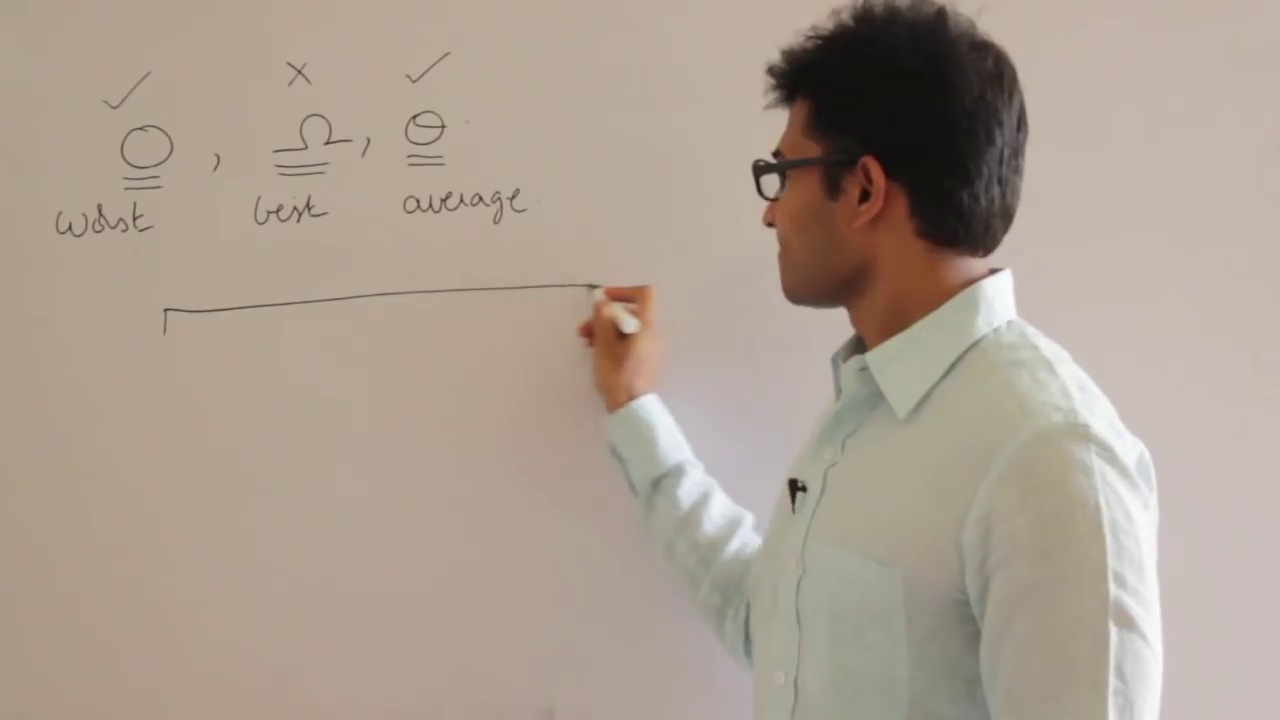 ✓ × ✓
O, Ω, Θ
worst best average